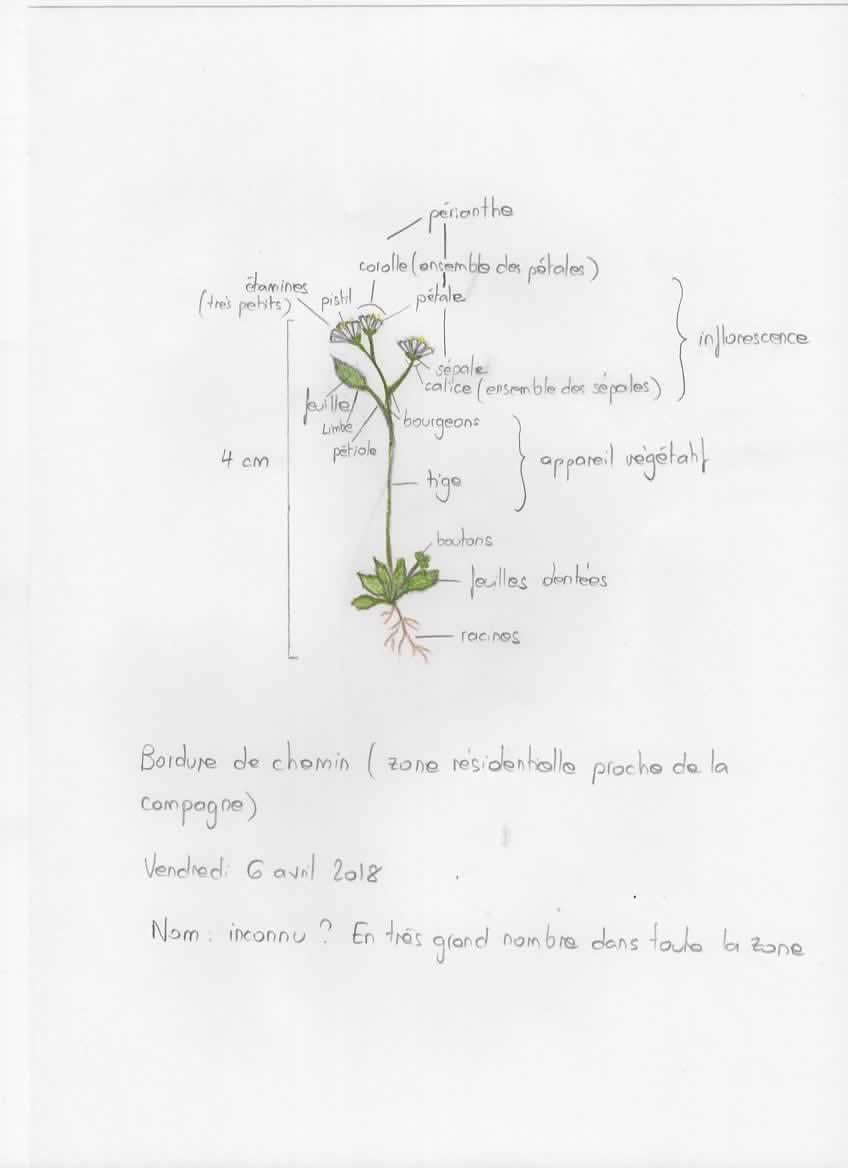 périanthe
corolle (ensemble des pétales)
étamines
(très petits)
pistil
pétale
inflorescence
sépale
calice (ensemble des sépales)
feuille
Limbe
pétiole
bourgeons
4 cm
appareil végétatif
tige
boutons
feuilles dentées
racines
Bordure de chemin ( zone résidentielle proche de la
campagne)
Vendredi 6 avril 2018
Nom : inconnu ? En très grand nombre dans toute la zone